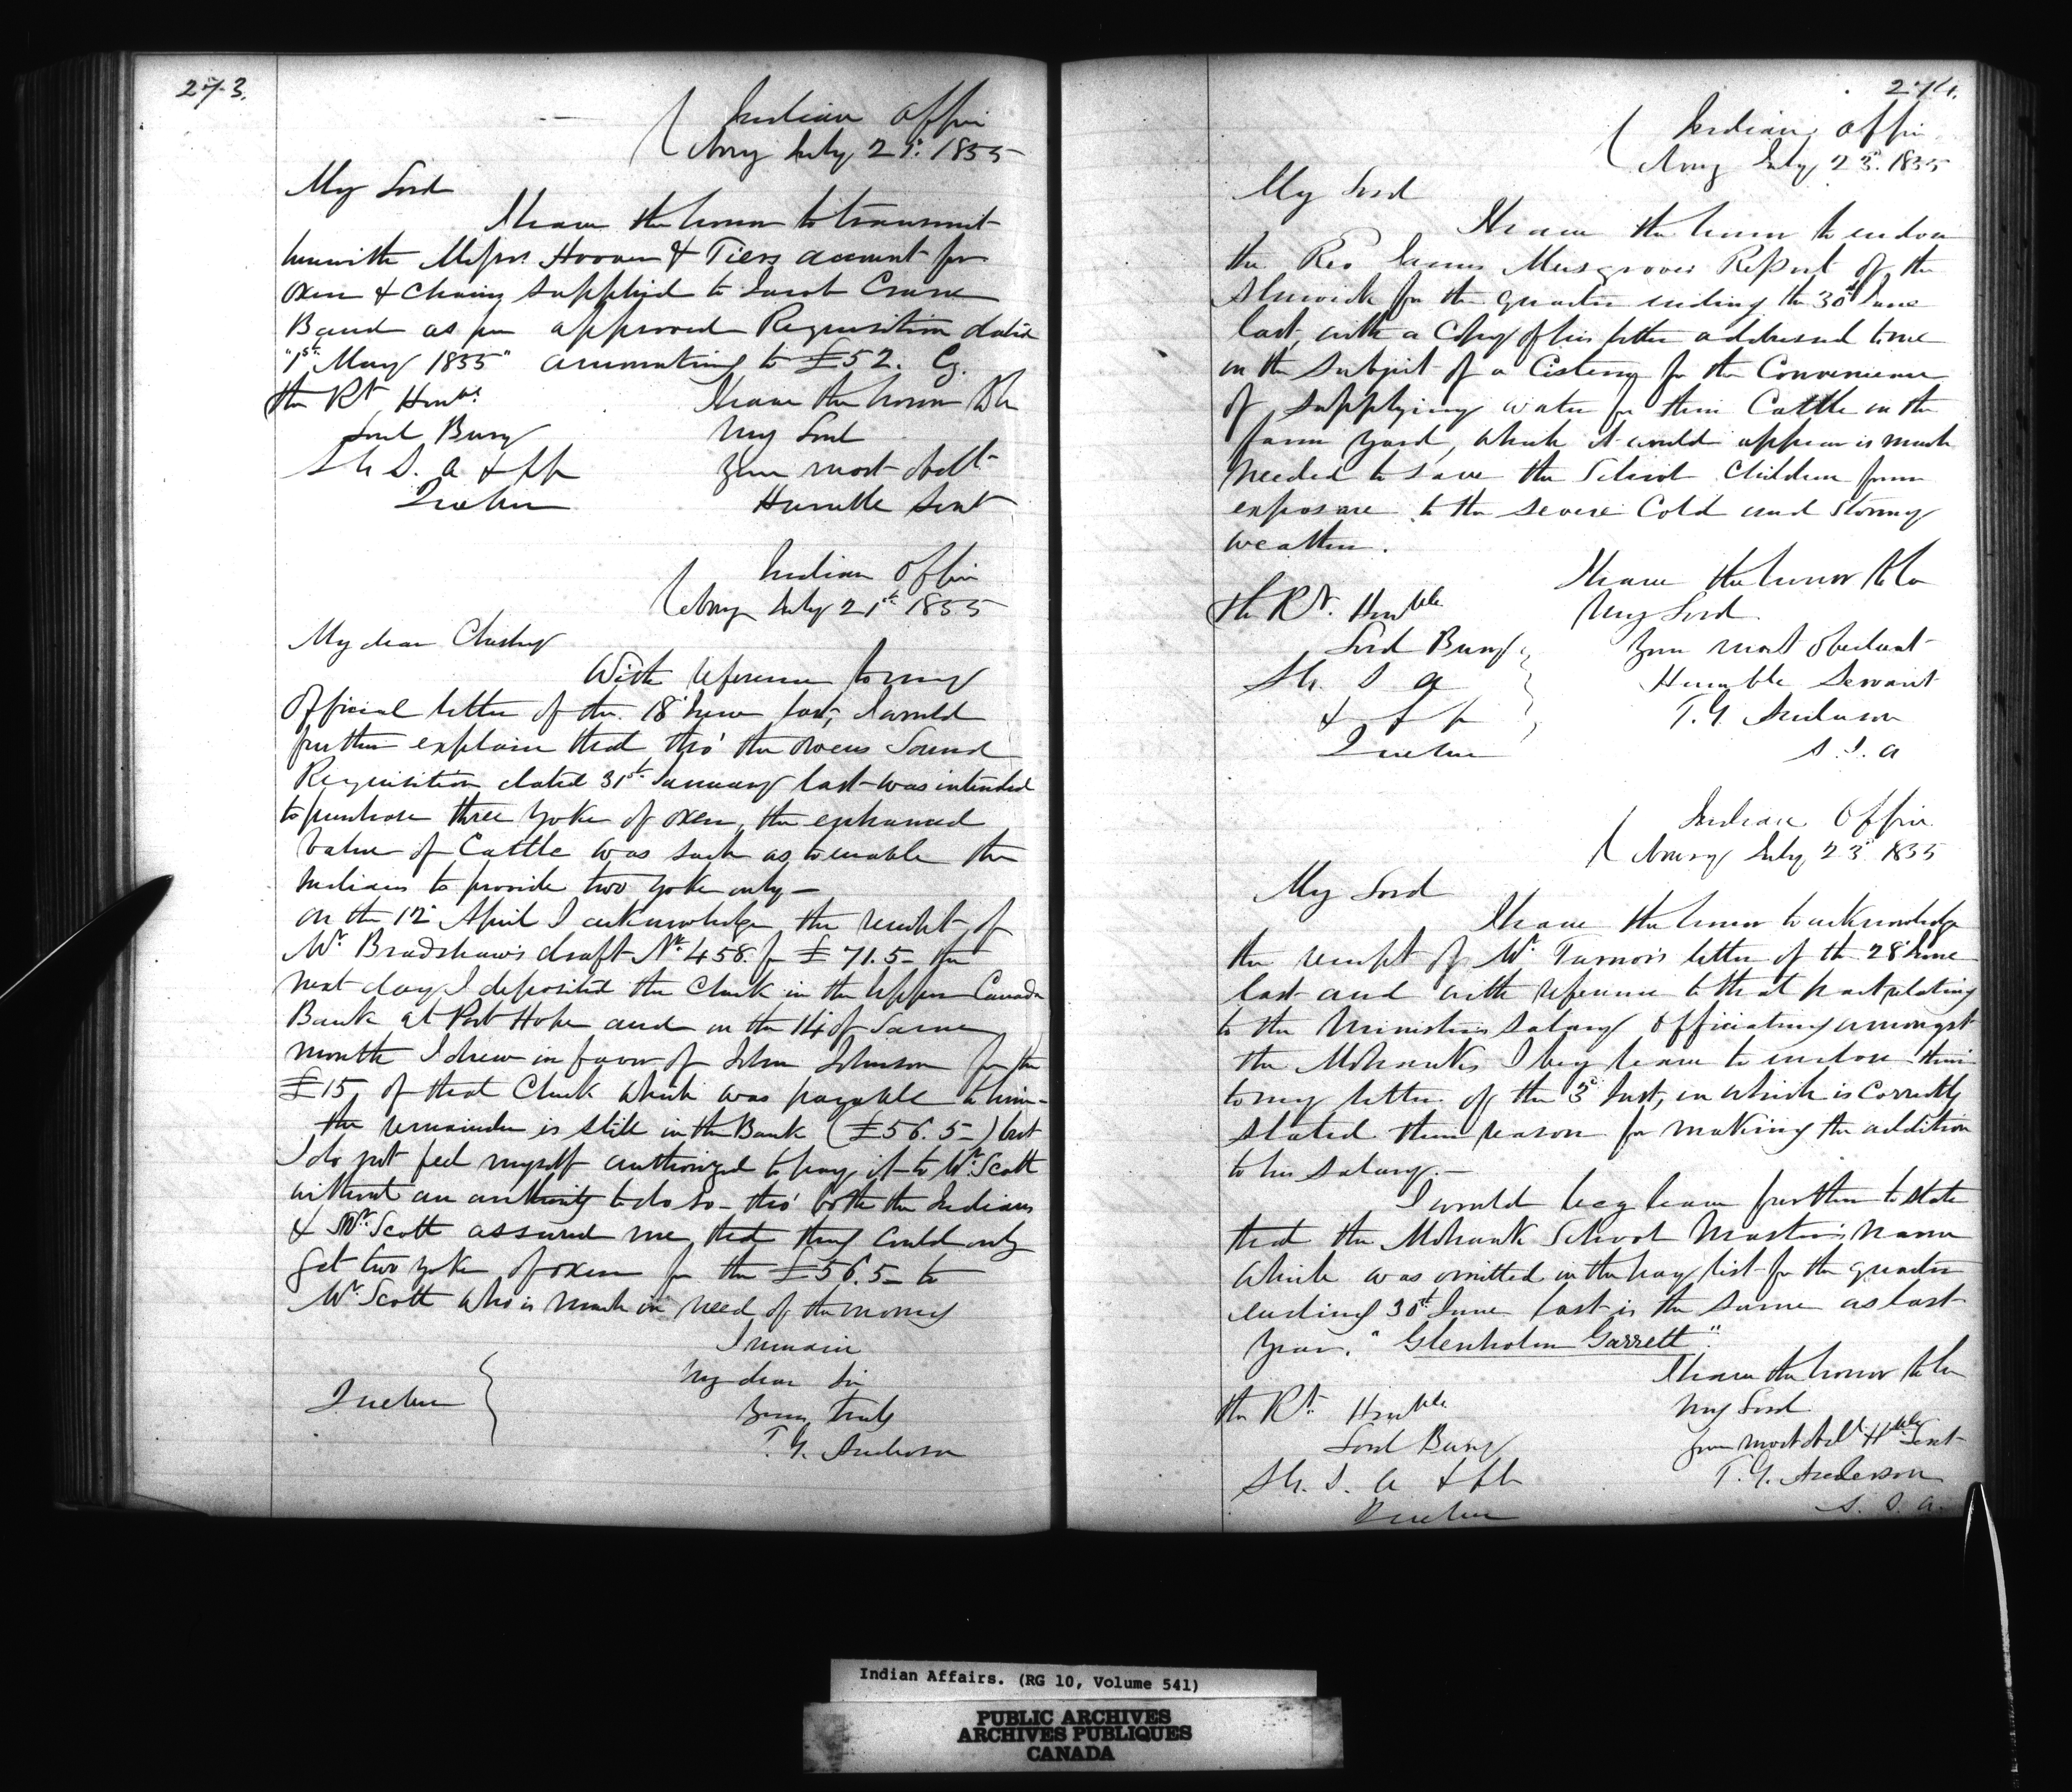 273.
Indian Office
Cobourg July 21st 1855
My Lord
I have the honor to transmit
herewith Messrs. Hoover & Tiers account for
oxen & chains supplied to Jacob Crane
Band as per approved Requisition dated
"1st May 1855" amounting to £52. Cy.
The Rt Honble
Lord Bury
S. G. I. A &c
Quebec
I have the honor to be
My Lord
Your most obedt
Humble Servt
Indian Office
Cobourg July 21st 1855
My dear Chesley
With reference to my
Official letter of the 18 June last, I would
further explain that tho' the Owens Sound
Requisition dated 31st January last was intended
to purchase three yoke of oxen, the enhanced
value of Cattle was such as to enable the
Indians to provide two yoke only –
On the 12 April I acknowledge the receipt of
Mr. Bradshaw's draft No. 458. for £71.5 – the
next day I deposited the Check in the Upper Canada
Bank at Port Hope and on the 14 of same
month I drew in favor of John Johnson for the
£15 of that Check which was payable to him –
the remainder is still in the Bank (£56.5 –) but
I do not feel myself authorized to pay it to Mr. Scott
without an authority to do so – tho' both the Indians
& Mr. Scott assured me that they could only
get two yoke of oxen for the £56.5 – to
Mr. Scott who is much in need of the money
I remain
My dear Sir
Yours truly
T. G. Anderson
Quebec
274.
Indian Office
Cobourg July 23d 1855
My Lord
I have the honor to enclose
the Rev James Musgroves Report of the
Alnwick for the quarter ending the 30th June
last, with a Copy of his letter addressed to me
on the subject of a Cistern for the Convenience
of supplying water for their Cattle in the
farm yard, which it would appear is much
needed to save the School Children from
exposure to the severe Cold and Stormy
weather.
I have the honor to be
My Lord
Your most obedient
Humble Servant
T. G. Anderson
S. I. A
The Rt. Honble
Lord Bury
S. G. I A
& &
Quebec
Indian Office
Cobourg July 23d 1855
My Lord
I have the honor to acknowledge
the receipt of Mr. Turnor's letter of the 28 June
last and with reference to that part relating
to the Ministers salary officiating amongst
the Mohawks I beg leave to enclose their
to my letter of the 3d Inst, in which is correctly
stated their reason for making the addition
to his salary. –
I would beg leave further to state
that the Mohawk School Master's name
which was omitted in the pay list for the quarter
ending 30th June last is the same as last
year. "Glenholm Garrett"
I have the honor to be
My Lord
Your most obedt Hble Servt
T. G. Anderson
S. I. A.
The Rt. Honble
Lord Bury
S. G. I. A &c
Quebec
Indian Affairs. (RG 10, Volume 541)
PUBLIC ARCHIVES
ARCHIVES PUBLIQUES
CANADA